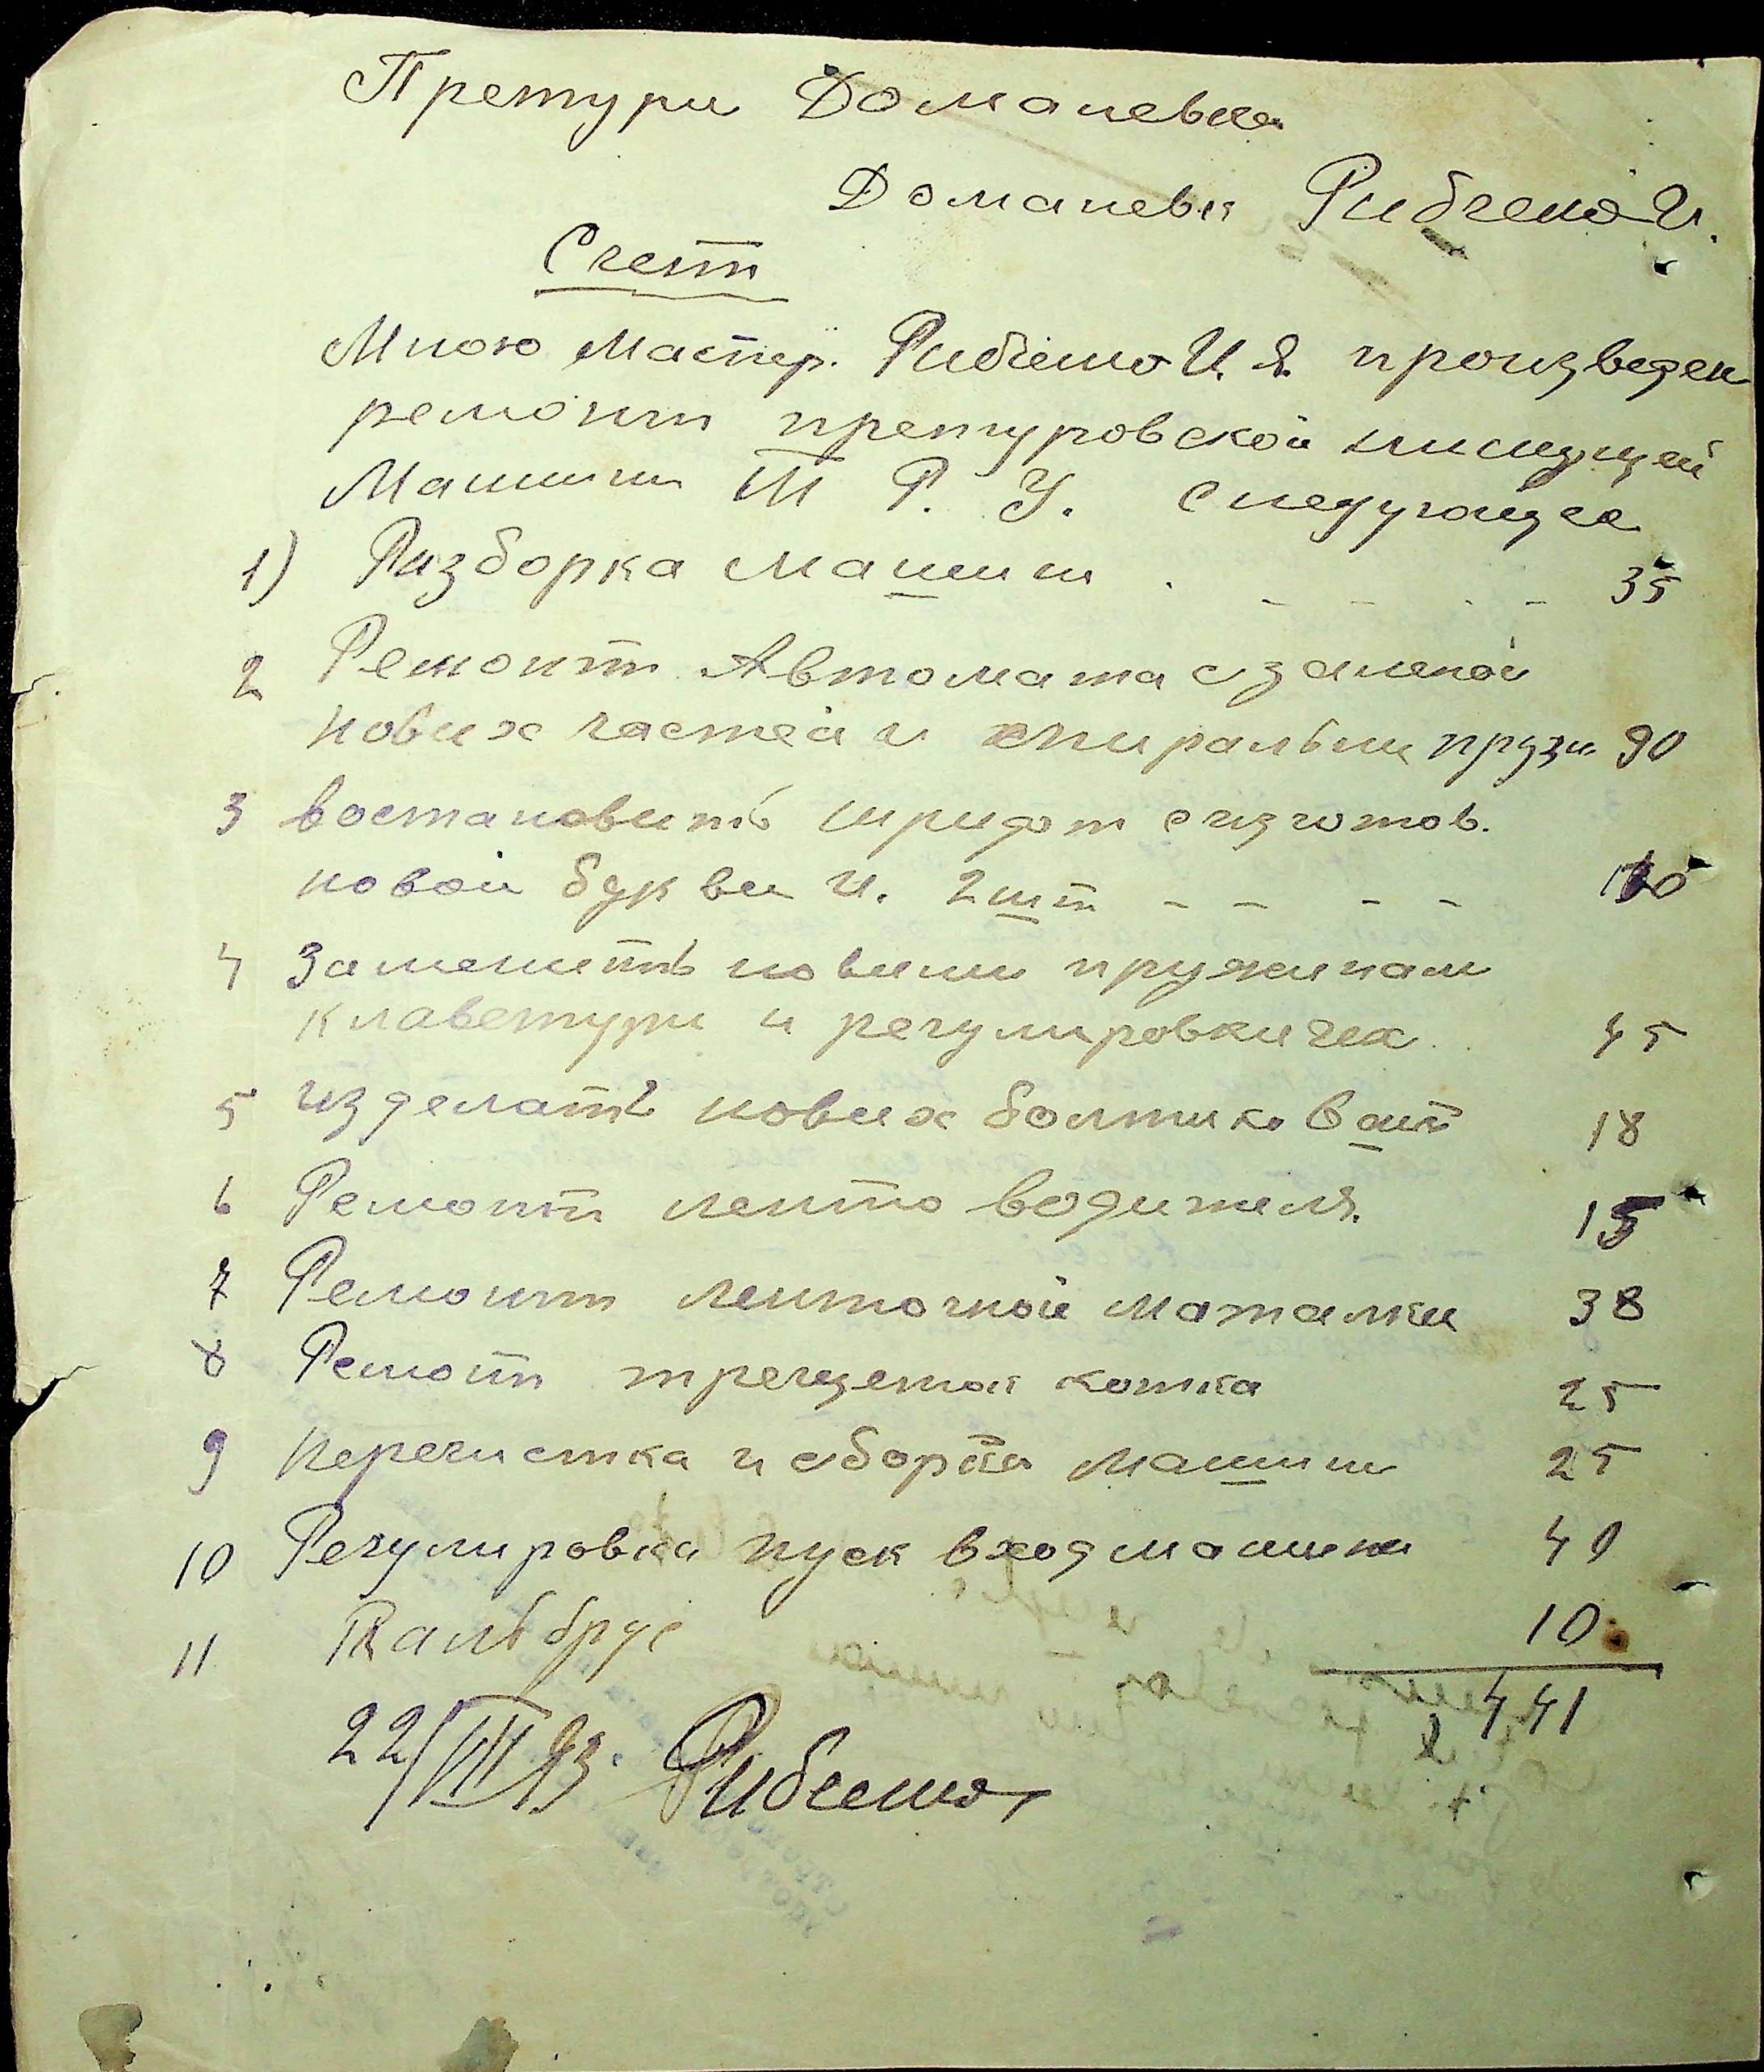 Претури Доманевка
Доманевк Рибченко И.
Счет
Мною мастер. Рибченко И. Я. произведен
ремонт претуровской пишущей
Машини Т Р. У. следующее
1) Разборка машини . - - . - 35
2 Ремонт Автомата с заменой
новых частей и спиральни прузи 90
3 востановить шридт с изготов.
новой букви И. 2 шт - - - -
4 Заменить новими пружинам
клаветури и регулировки чех 45
5 изделать новых болтиков шт 18
6 Ремонт ленто водителя. 15
7 Ремонт ленточной моталки 38
8 Ремонт трещетки котка 25
9 перечистка и сборка машини 25
10 Регулировка пуск вход машини 40
11 10
441
22/VIII 43. Рибченко